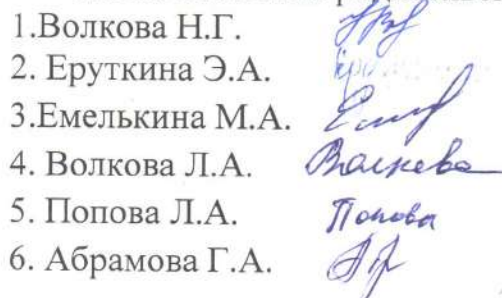 1.Волкова Н.Г.
2. Еруткина Э.А.
3.Емелькина М.А.
4. Волкова Л.А. Волкова
5. Попова Л.А. Попова
6. Абрамова Г.А.